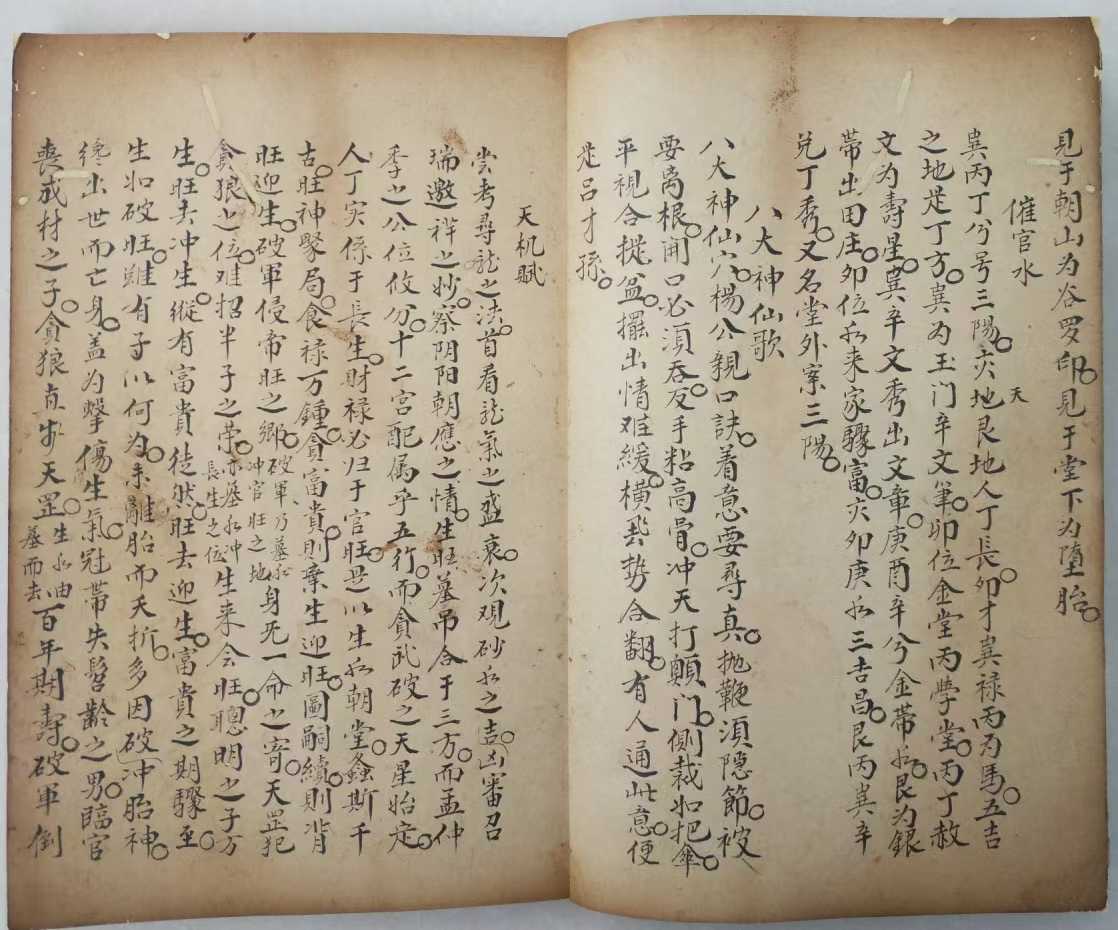 見于朝山为谷罗印。見于堂下为墮胎。
催官水
巽丙丁兮号三陽。天
亥地艮地人丁長。卯才巽禄丙为馬。五吉
之地是丁方。巽为玉门辛文筆。卯位金堂丙學堂。丙丁赦
文为壽星。巽辛文秀出文章。庚酉辛兮金带水。艮为銀
带出田庄。卯位水来家驟富。亥卯庚水三吉昌。艮丙巽辛
兑丁秀。又名堂外案三陽。
八大神仙歌
八大神仙穴。楊公親口訣。着意要尋真。抛鞭須隐節。被
要离根。開口必須吞。反手粘高骨。冲天打顖门。側裁如把傘。
平視合摐盆。擺出情难緩。横势合翻。有人通此意。便
是吕才孫。
天机賦
尝考尋龙之法。首看龙氣之盛衰。次观砂水之吉凶。審召
瑞邀祥之妙。察阴阳朝應之情。生旺墓吊合于三方。而孟仲
季之公位攸分。十二宫配属乎五行。而貪武破之天星始定。
人丁实係于長生。財禄必归于官旺。是以生水朝堂。螽斯千
古。旺神聚局。食禄万鍾。貪富貴。則棄生迎旺。圖嗣續。則背
旺迎生。破軍侵帝旺之鄉。破軍乃墓水冲官旺之地身死一命之寄。天罡犯
貪狼之位。难招半子之荣。亦墓水冲長生之位生来会旺。聰明之子方
生。旺去冲生。縱有富貴徒然。旺去迎生。富貴之期驟至。
生如破旺。雖有子以何为。未離胎而夭折。多因破冲胎神。
纔出世而亡身。盖为擊傷生氣。冠带失髫齡之男。臨官
丧成材之子。貪狼直步天罡。生水由墓而去百年期壽。破軍倒